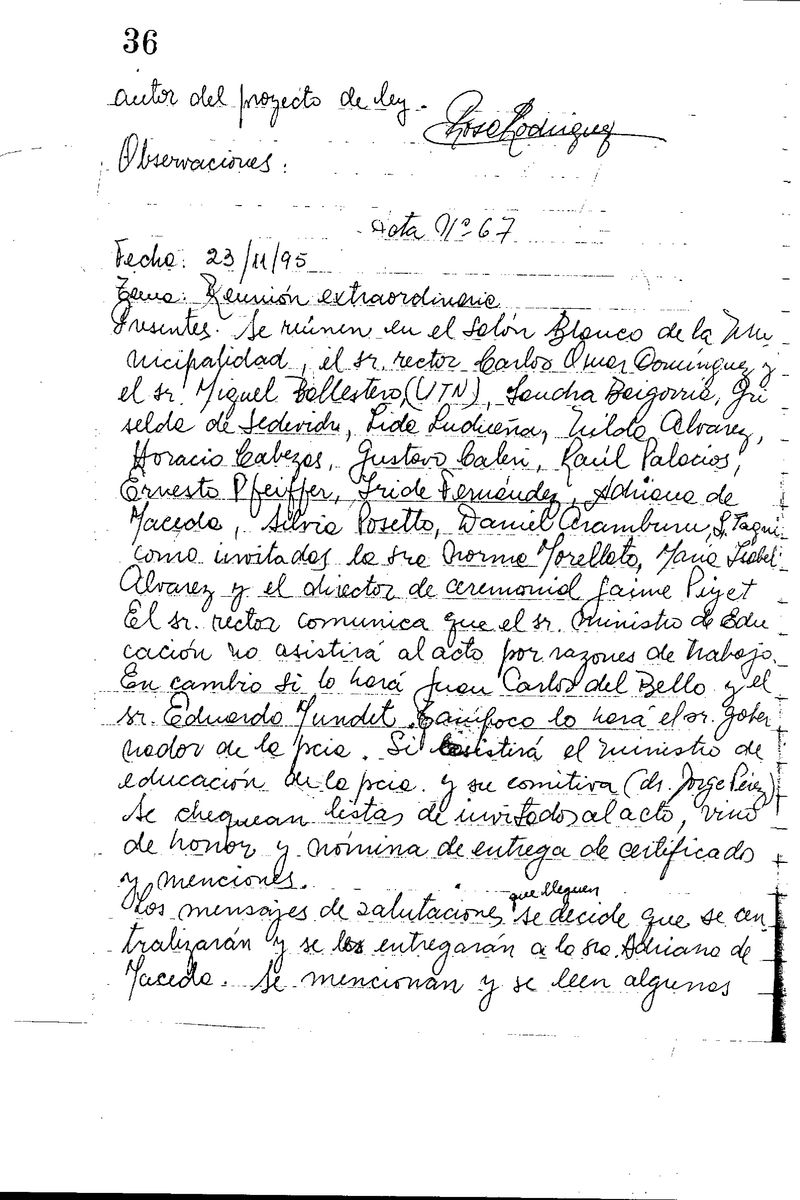 36
autor del proyecto de ley.
Rosa Rodriguez
Observaciones:
Acta Nº 67
Fecha: 23/11/95
Tema: Reunión extraordinaria
Presentes: Se reúnen en el Salón Blanco de la Mu
nicipalidad, el sr. rector Carlos Omar Domínguez y
el sr. Miguel Ballestero, (UTN), Sandra Baigorria, Gri
selda de Sedevich, Lida Ludueña, Nilda Alvarez,
Horacio Cabezas, Gustavo Caleri, Raúl Palacios,
Ernesto Pfeiffer, Iride Fernández, Adriana de
Maceda, Silvia Posetto, Daniel Aramburu, S. Taqui
como invitados la sra Norma Morellato, María Isabel
Alvarez y el director de ceremonial Jaime Piyet
El sr. rector comunica que el sr. Ministro de Edu
cación no asistirá al acto por razones de trabajo.
En cambio si lo hará Juan Carlos del Bello y el
sr. Eduardo Mundet. Tampoco lo hará el sr. gober
nador de la pcia. Si asistirá el ministro de
educación de la pcia. y su comitiva (dr. Jorge Pérez)
Se chequean listas de invitados al acto, vino
de honor y nómina de entrega de certificado
y menciones.
Los mensajes de salutaciones que lleguen se decide que se cen
tralizarán y se los entregarán a la sra. Adriana de
Maceda. Se mencionan y se leen algunos